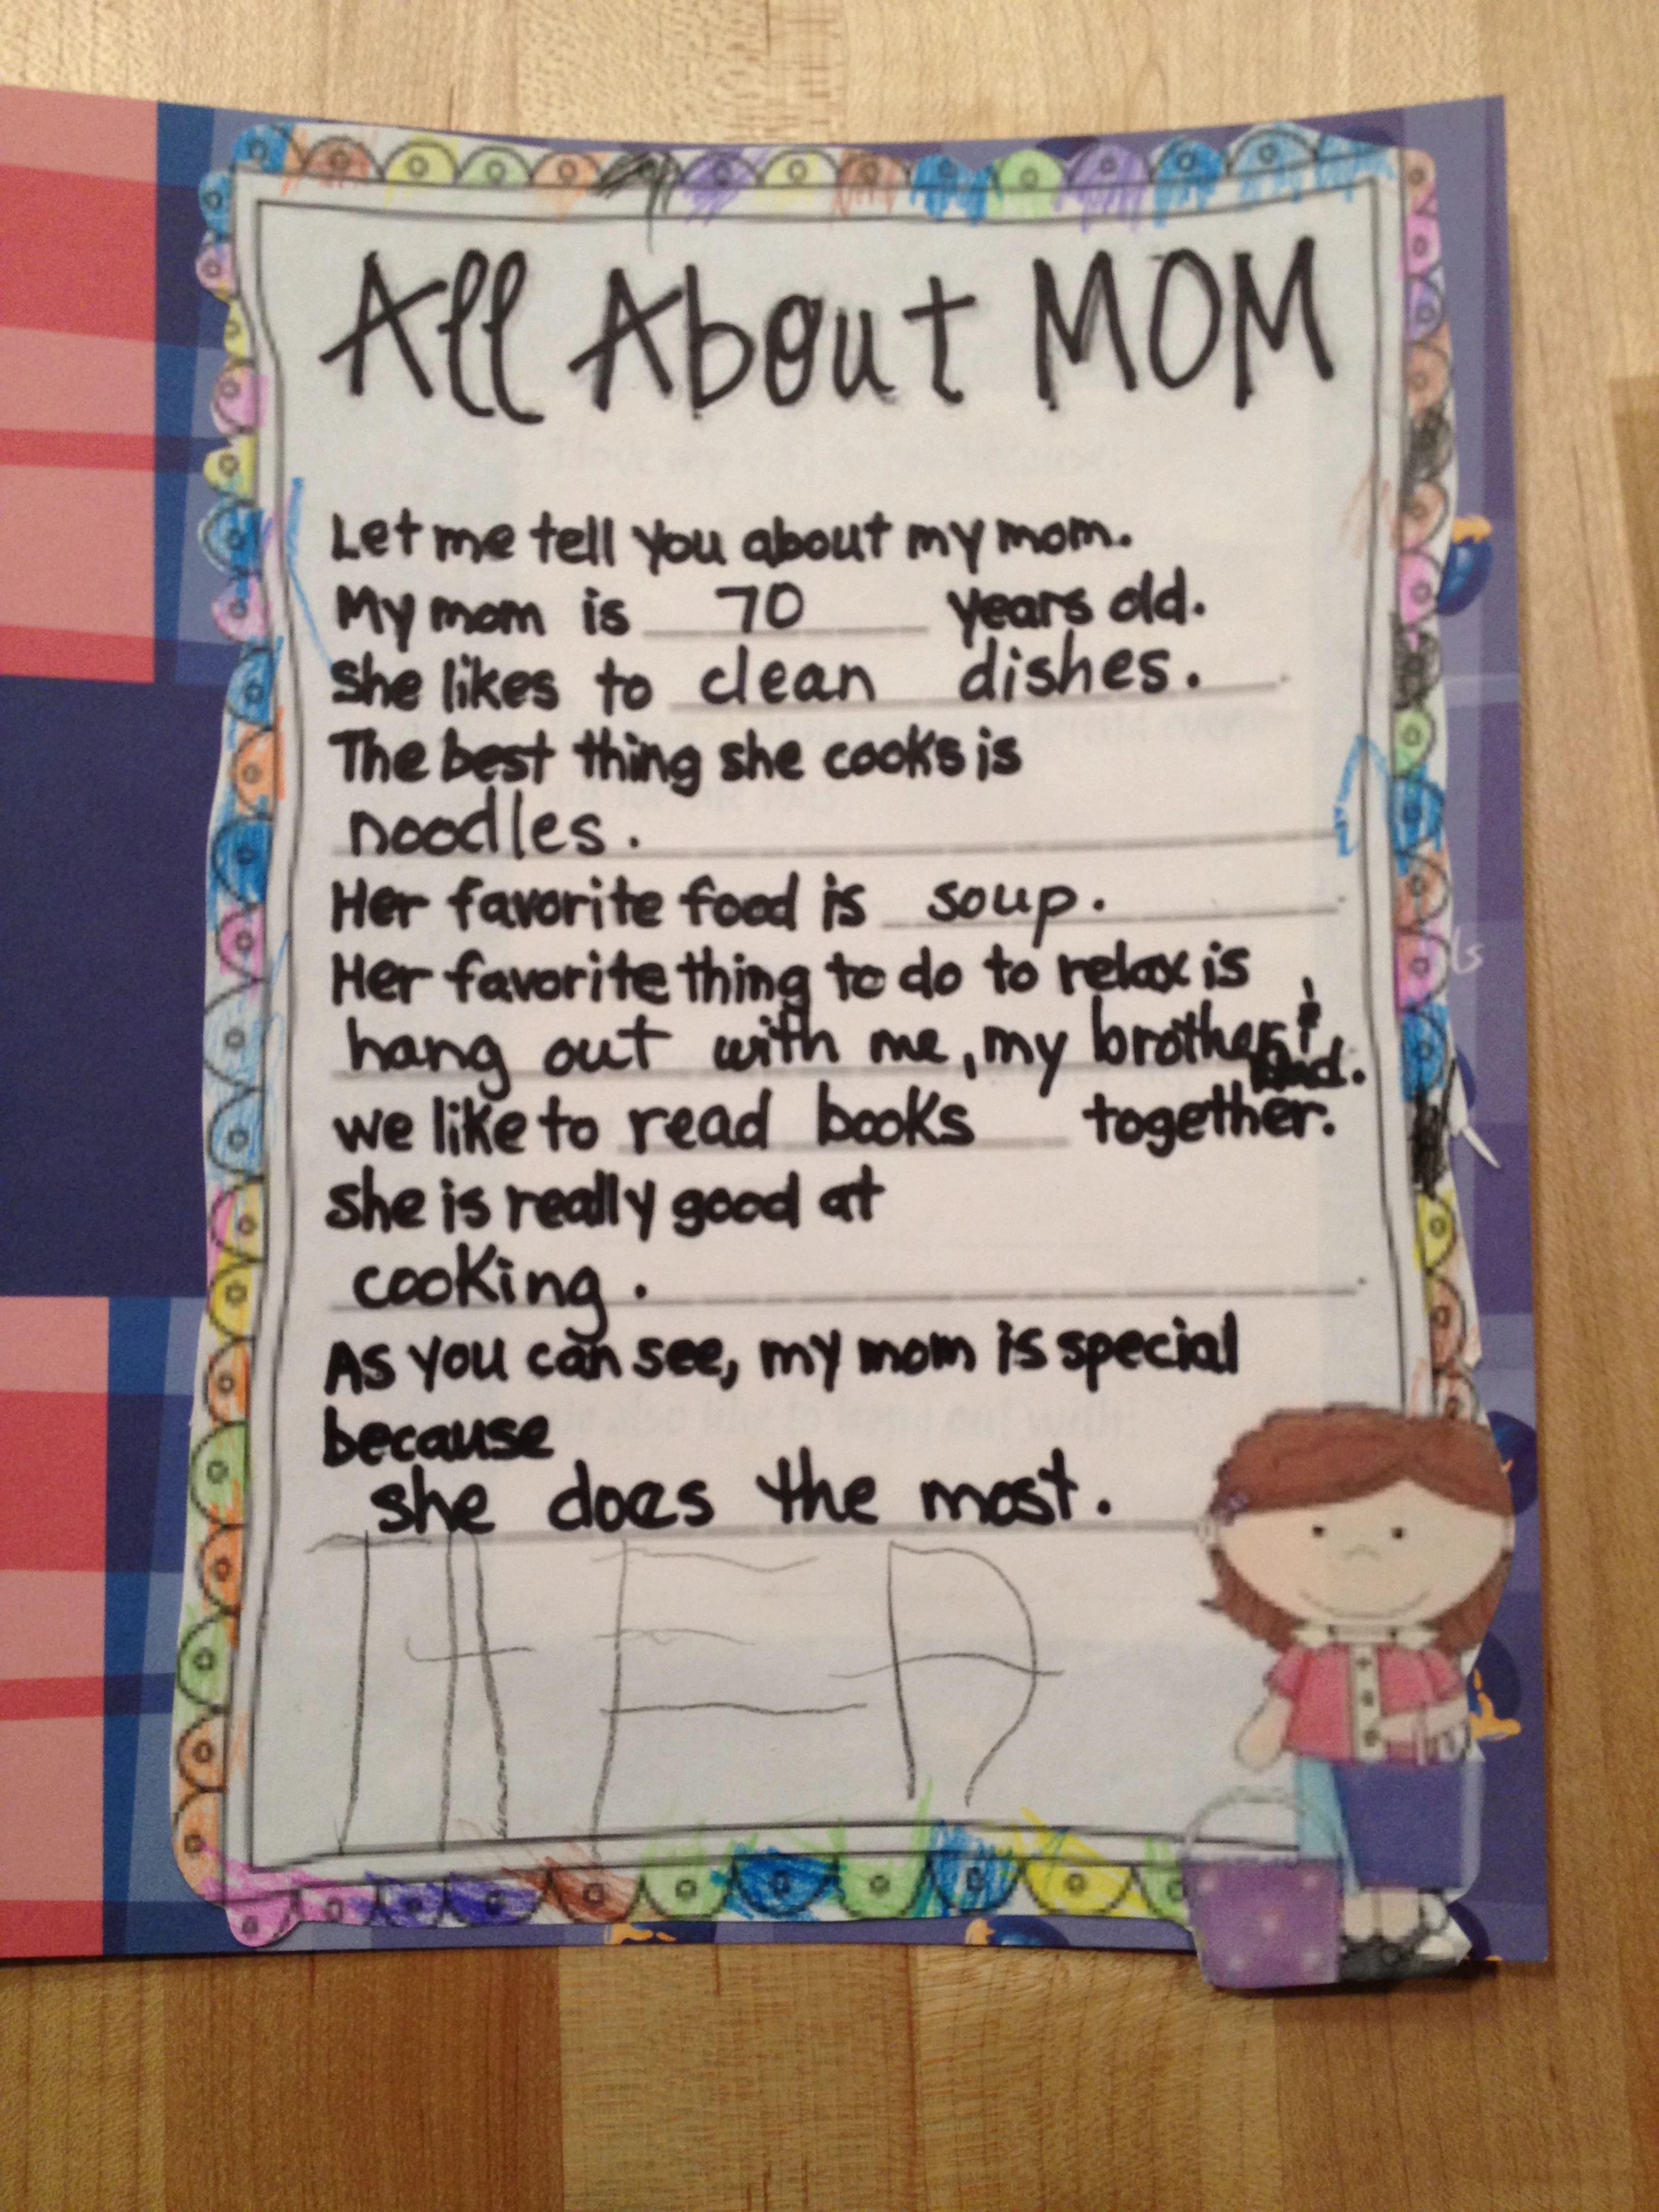 All About MOM
Let me tell you about my mom.
My mom is 70 years old.
She likes to clean dishes.
The best thing she cooks is
noodles.
Her favorite food is soup.
Her favorite thing to do to relax is
hang out with me, my brother &
Dad.
We like to read books together.
She is really good at
cooking.
As you can see, my mom is special
because
she does the most.